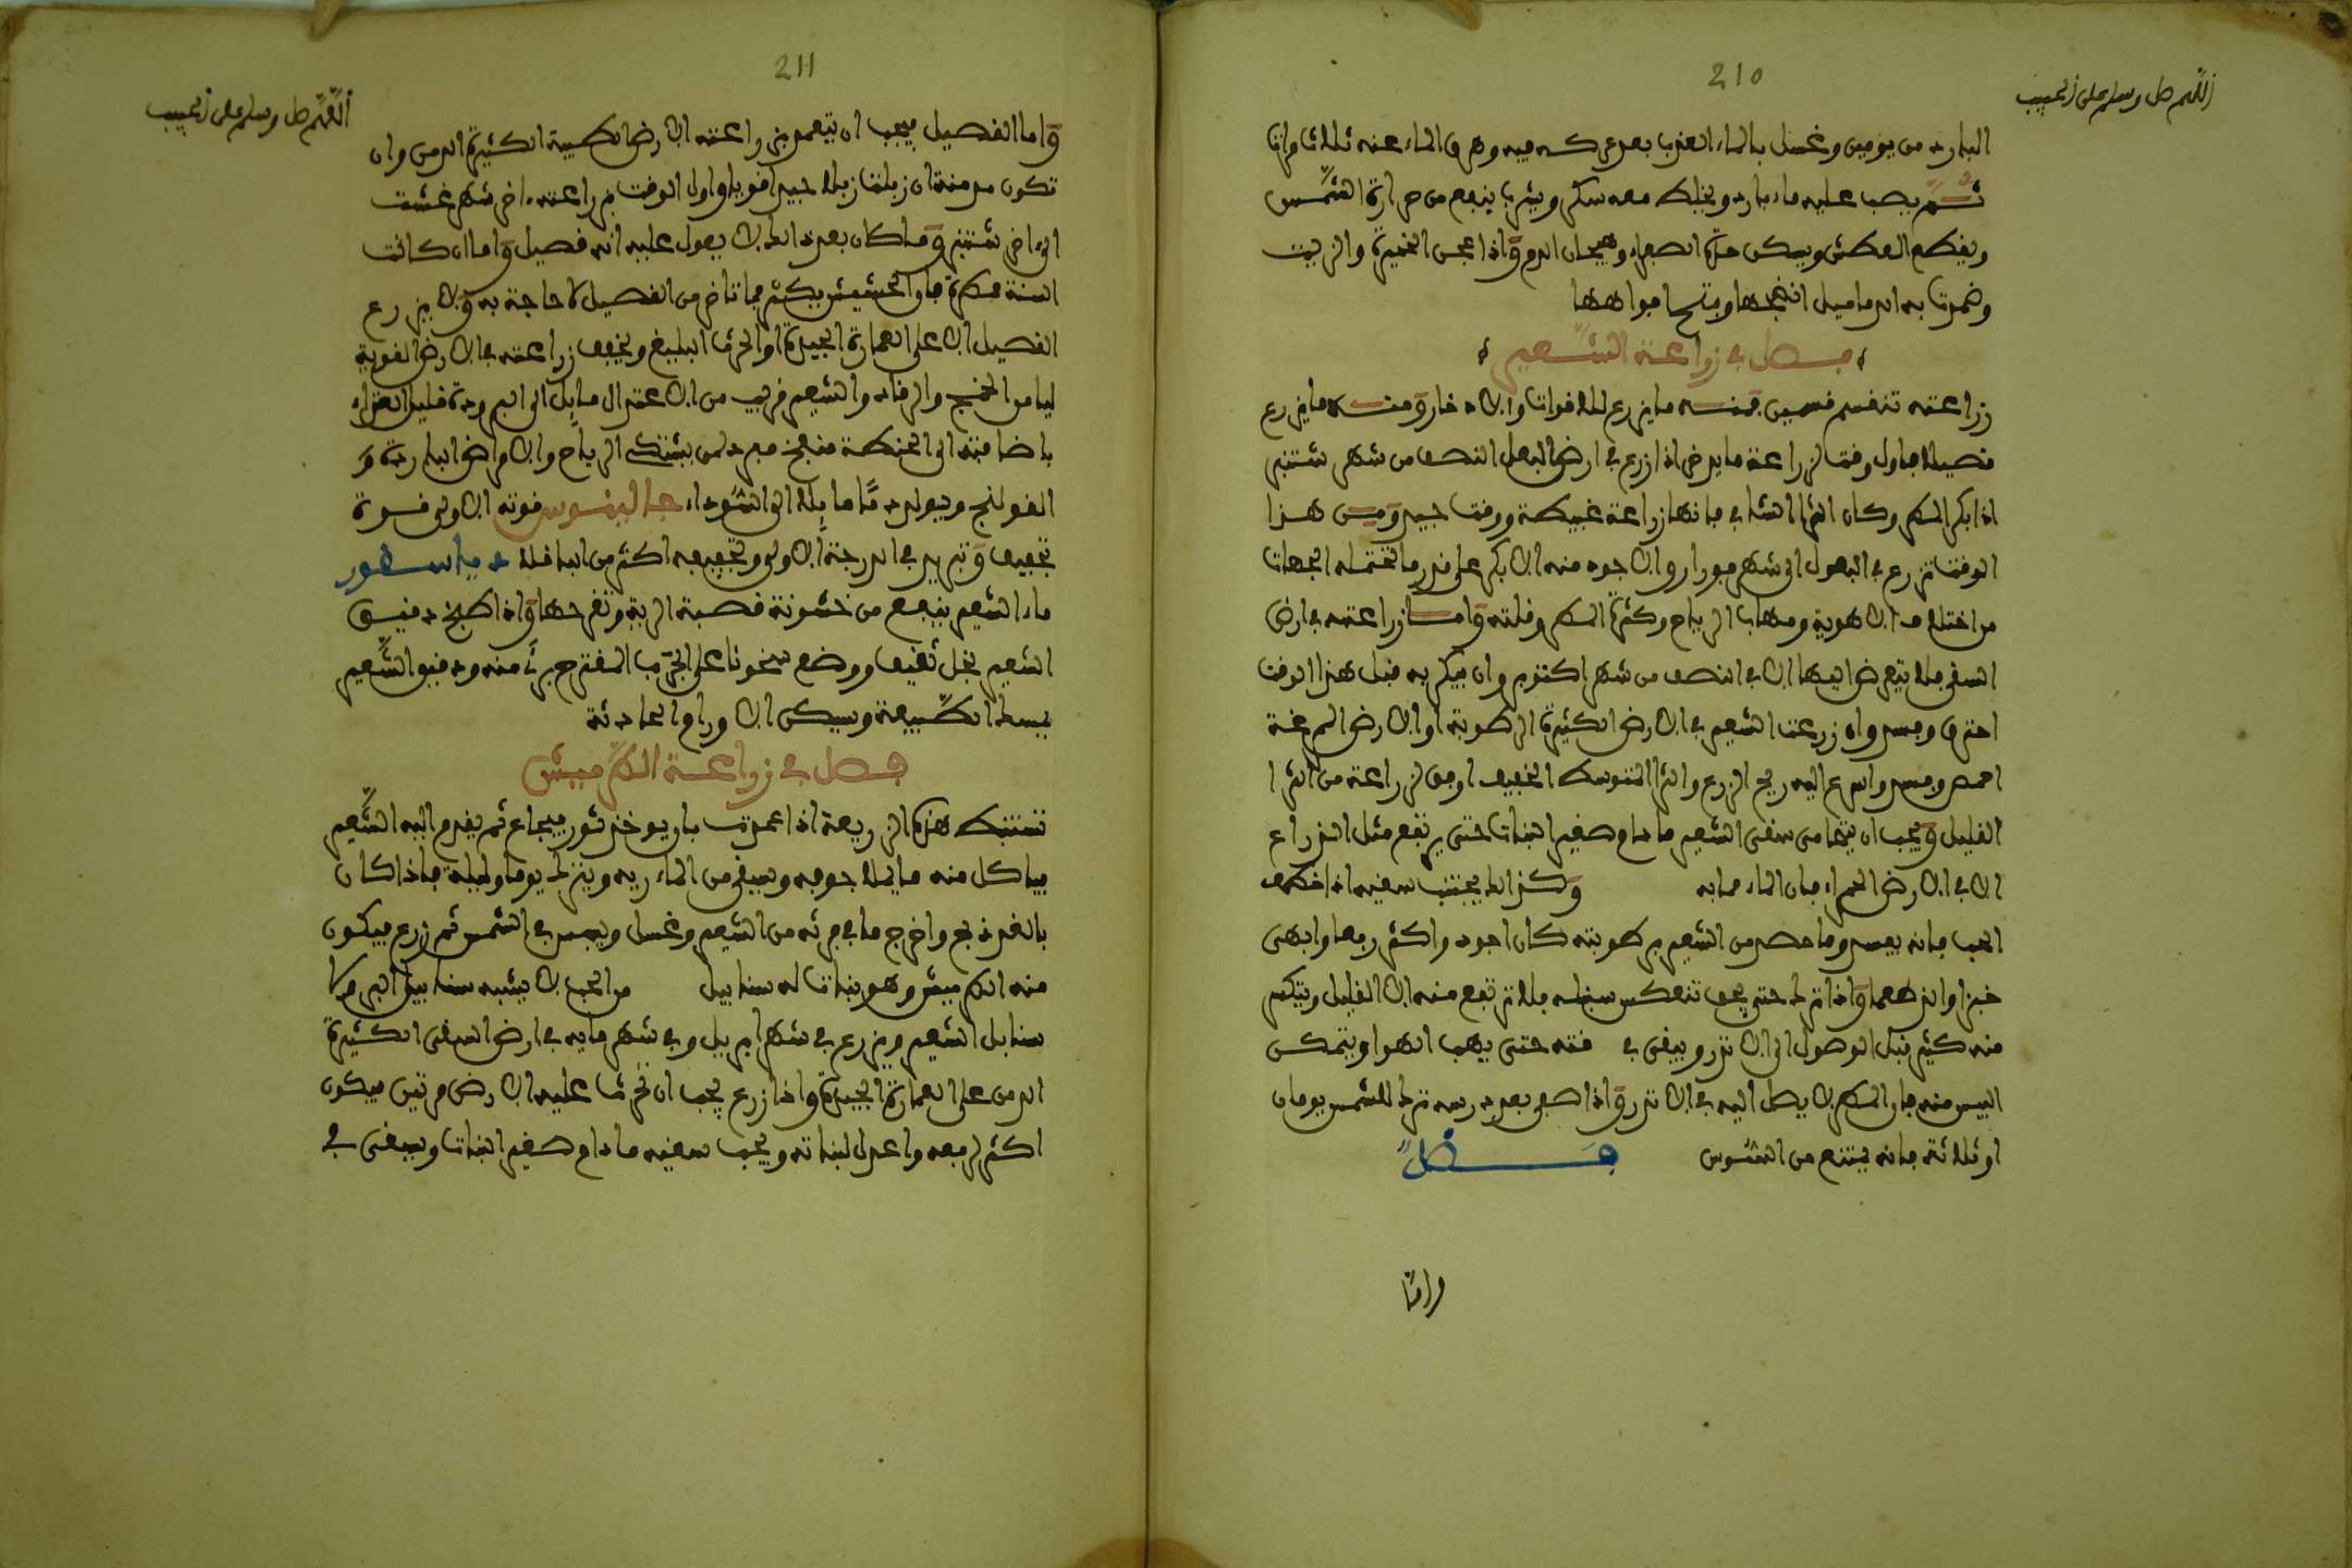 210
اللهم صل وسلم على الحبيب
البارد من يومين وغسل بالماء العذب بعد عركه فيه وهرق الماء عنه ثلاث مرات
ثم يصب عليه ماء بارد ويخلط معه سكر ويشرب ينفع من حرارة الشمس
ويقطع العطش ويسكن حدة الصفراء وهيجان الدم وإذا عجن الخميرة والزيت
وضمدت به الدماميل انضجها وفتح افواهها
فصل في زراعة الشعير
زراعته تنقسم قسمين فمنه ما يزرع للاقوات والادخار ومنه ما يزرع
قصيلا فاول وقت الزراعة ما يدخر اذا زرع في ارض البعل النصف من شهر شتنبر
اذا بكر المطر وكان الثرا الشافي فانها زراعة غبيطة ووقت جيد ومن هذا
الوقت تزرع في البعول الى شهر فورار والاجود منه الابكر على قدر ما تحتمله الجهات
من اختلاف الاهوية ومهاب الرياح وكثرة المطر وقلته واما زراعته في ارض
السقي فلا يتعرض اليها الا في النصف من شهر اكتوبر وان بكر به قبل هذا الوقت
احترق وفسد وان زرعت الشعير في الارض الكثيرة الرطوبة او الارض المرغة
احمر وفسد واسرع اليه ريح الزرع والثرا المتوسط الخفيف اوفق لزراعة من الثرا
القليل ويجب ان يتحامى سقي الشعير ما دام صغير النبات حتى يرتفع مثل الذراع
الا في الارض الحمراء فان الماء فيه وكذلك يجتنب سقيه اذا
الحب فانه يفسد وما حصد من الشعير برطوبته كان اجود واكثر ريعا وابهى
خبزا وان هما واذا ترك حتى يجف تنعكس سنبله فلا ترتفع منه الا القليل ويتكسر
منه كثير قبل الوصول الى الاندر ويبقى في فته حتى يهب الهوا ويتمكن
اليبس منه فان المطر لا يصل اليه في الاندر واذا صفي بعد درسه ترك للشمس يومان
او ثلاثة فانه يمتنع من السوس فصل
واما
211
اللهم صل وسلم على الحبيب
واما القصيل فيجب ان يتعمد في زراعته الارض الطيبة الكثيرة الدمن وان
تكون مدمنة ان زبلت زبلا جيدا قويا واول الوقت في زراعته اخر شهر غشت
الى اخر شتنبر وما كان بعد ذلك لا يعول عليه انه قصيل واما ان كانت
السنة مطرة فان الحشيش يكثر فما تاخر من القصيل لا حاجة به ولا يزرع
القصيل الا على العمارة الجيدة او الحرث البليغ ويخفف زراعته في الارض القوية
ليا من الخنج والرقاد والشعير قريب من الاعتدال مايل الى البرودة قليل الغذاء
باضافته الى الحنطة منفخ مع دلمن يشتكي الرياح والامراض الباردة و
القولنج ويولد دما مايلا الى السوداء جالينوس قوته الاولى قوة
تجفيف وتبريد في الدرجة الاولى وتجفيفه اكثر من الباقلا ديسقور
ماء الشعير ينفع من خشونة قصبة الرية وتقرحها واذا طبخ دقيق
الشعير بخل ثقيف ووضع سخونا على الجرب المتقرح برئ منه ودقيق الشعير
يبسط الطبيعة ويسكن الاورام الحادثة
فصل في زراعة الكرميش
تستنبط هذه الزريعة اذا عدمت بان يوخذ ثور فيجاع ثم يقدم اليه الشعير
فياكل منه ما يملا جوفه ويسقى من الماء ريه ويترك يوما وليلة فاذا كان
بالغد ذبح واخرج ما في فرثه من الشعير وغسل ويبس في الشمس ثم زرع فيكون
منه الكرميش وهو نبات له سنابيل من الحب لا يشبه سنابيل البر ولا
سنابل الشعير ويزرع في شهر ابريل وفي شهر مايه في ارض السقي الكثيرة
الدمن على العمارة الجيدة واذا زرع يجب ان تحرث عليه الارض مرتين فيكون
اكثر لريعه واعدل لنباته ويجب سقيه ما دام صغير النبات ويسقى في